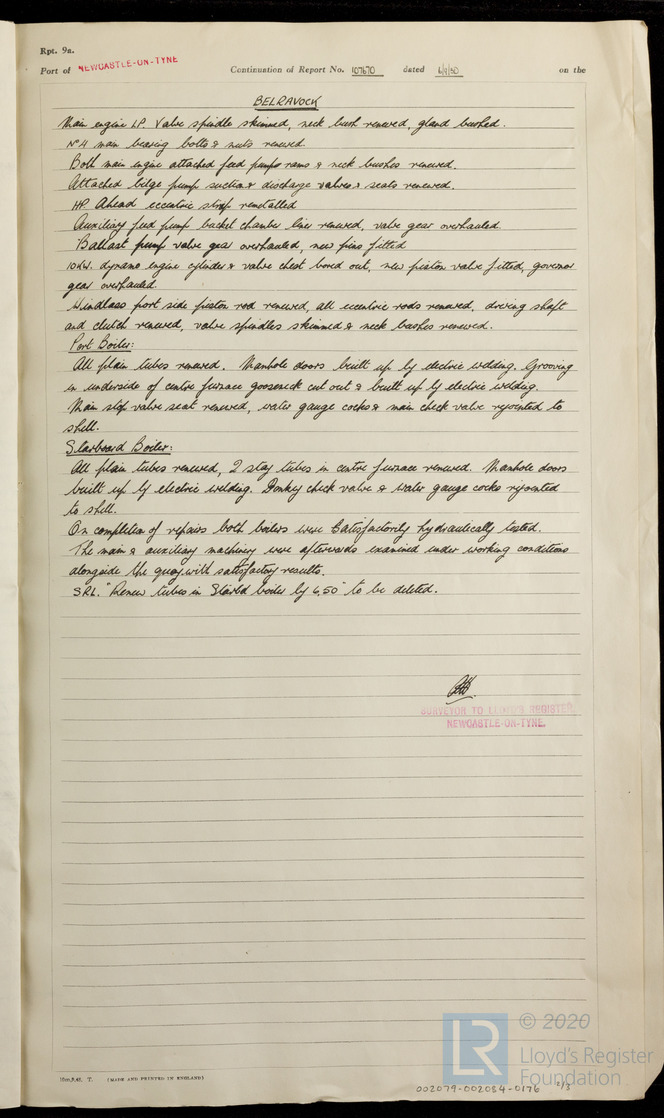 Rpt. 9a.
Port of NEWCASTLE-ON-TYNE Continuation of Report No. 107670 dated 6/9/50 on the
BELRAVOCK
Main engine LP. Valve spindle skimmed, neck bush renewed, gland bushed.
No 4 main bearing bolts & nuts renewed.
Both main engine attached feed pumps rams & neck bushes renewed.
Attached bilge pump suction & discharge valves & seats renewed.
HP. Ahead eccentric strap remetalled
Auxiliary feed pump bucket chamber liner renewed, valve gear overhauled.
Ballast pump valve gear overhauled, new pins fitted
10 kW. dynamo engine cylinder & valve chest bored out, new piston valve fitted, governor
gear overhauled.
Windlass port side piston rod renewed, all eccentric rods renewed, driving shaft
and clutch renewed, valve spindles skimmed & neck bushes renewed.
Port Boiler:
All plain tubes renewed. Manhole doors built up by electric welding. Grooving
in underside of centre furnace gooseneck cut out & built up by electric welding.
Main stop valve seat renewed, water gauge cocks & main check valve rejointed to
shell.
Starboard Boiler:
All plain tubes renewed, 2 stay tubes in centre furnace renewed. Manhole doors
built up by electric welding. Donkey check valve & water gauge cocks rejointed
to shell.
On completion of repairs both boilers were satisfactorily hydraulically tested.
The main & auxiliary machinery were afterwards examined under working conditions
alongside the quay with satisfactory results.
SRL. "Renew tubes in Starbd boiler by 6,50" to be deleted.
SURVEYOR TO LLOYD'S REGISTER,
NEWCASTLE-ON-TYNE.
T. (MADE AND PRINTED IN ENGLAND)
LR © 2020
Lloyd's Register
Foundation
002079-002084-0176 1/3